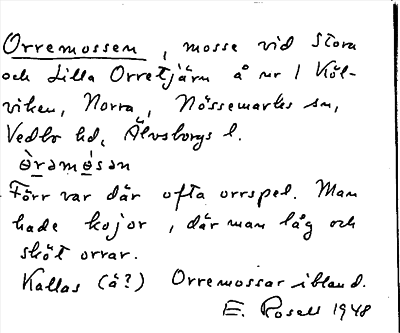 Orremossen, mosse vid Stora
och Lilla Orretjärn å nr 1 Köl-
viken, Norra, Nössemarks sn,
Vedbo hd, Älvsborgs l.
òrəmósən
Förr var där ofta orrspel. Man
hade kojor, där man låg och
sköt orrar.
Kallas (å?) Orremossar ibland.
E. Rosell 1948